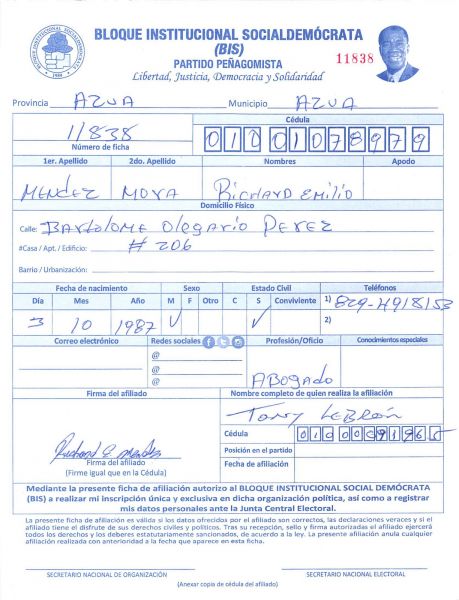 BLOQUE INSTITUCIONAL SOCIALDEMÓCRATA
(BIS)
PARTIDO PEÑAGOMISTA
Libertad, Justicia, Democracia y Solidaridad
11838
Provincia AZUA Municipio AZUA
11838
Número de ficha
Cédula
01001078979
1er. Apellido 2do. Apellido Nombres Apodo
MENDEZ MOYA RICHARD EMILIO
Domicilio Físico
Calle: BARTOLOME Olegario PEREZ
#Casa / Apt. / Edificio: # 206
Barrio / Urbanización:
Fecha de nacimiento Sexo Estado Civil Teléfonos
Día Mes Año M F Otro C S Conviviente 1) 829-4918153
3 10 1987 ✓ ✓ 2)
Correo electrónico Redes sociales Profesión/Oficio Conocimientos especiales
@
@
@
ABOGADO
Firma del afiliado Nombre completo de quien realiza la afiliación
TONY LEBRÓN
Richard E Mendez
Firma del afiliado
(Firme igual que en la Cédula)
Cédula
Posición en el partido
Fecha de afiliación
Mediante la presente ficha de afiliación autorizo al BLOQUE INSTITUCIONAL SOCIAL DEMÓCRATA
(BIS) a realizar mi inscripción única y exclusiva en dicha organización política, así como a registrar
mis datos personales ante la Junta Central Electoral.
La presente ficha de afiliación es válida si los datos ofrecidos por el afiliado son correctos, las declaraciones veraces y si el
afiliado tiene el disfrute de sus derechos civiles y políticos. Tras su recepción, sello y firma autorizadas el afiliado ejercerá
todos los derechos y los deberes estatutariamente sancionados, de acuerdo a la ley. La presente afiliación anula cualquier
afiliación realizada con anterioridad a la fecha que aparece en esta ficha.
SECRETARIO NACIONAL DE ORGANIZACIÓN SECRETARIO NACIONAL ELECTORAL
(Anexar copia de cédula del afiliado)